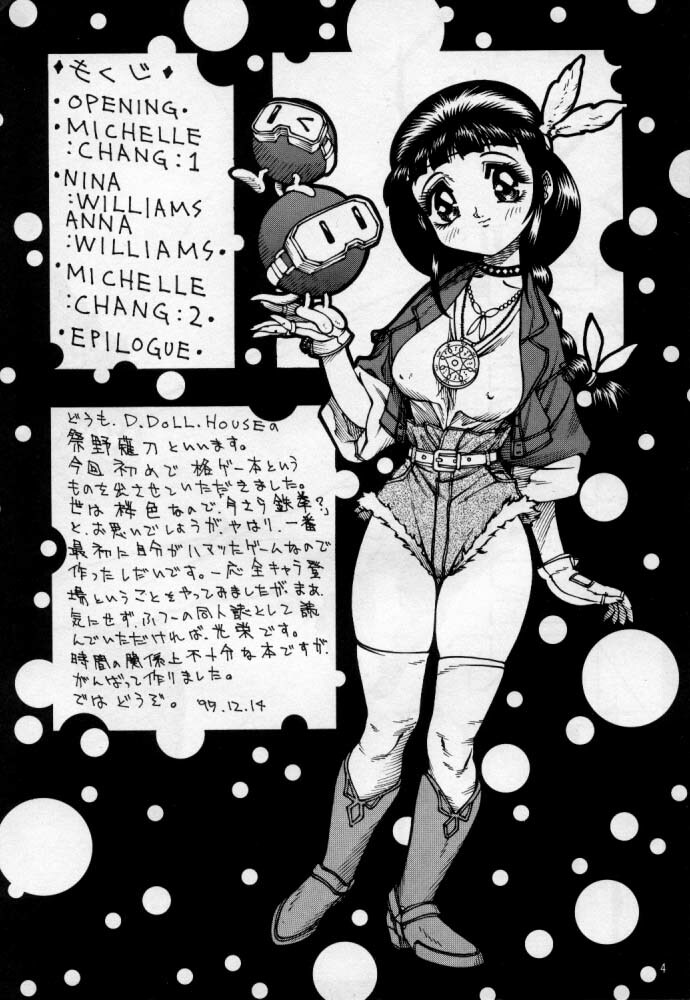 ♦もくじ♦
・OPENING・
・MICHELLE
:CHANG:1
・NINA
:WILLIAMS
ANNA
:WILLIAMS・
・MICHELLE
:CHANG:2・
・EPILOGUE・
どうも、D.DOLL.HOUSEの
祭野薙刀といいます。
今回初めて格ゲー本という
ものを出させていただきました。
世は桃色なので、「今さら鉄拳?」
と、お思いでしょうが、やはり、一番
最初に自分がハマッたゲームなので
作ったしだいです。一応全キャラ登
場ということをやってみましたが、まあ、
気にせず、ふつーの同人誌として読
んでいただければ、光栄です。
時間の関係上不十分な本ですが、
がんばって作りました。
ではどうぞ。 '97.12.14
4